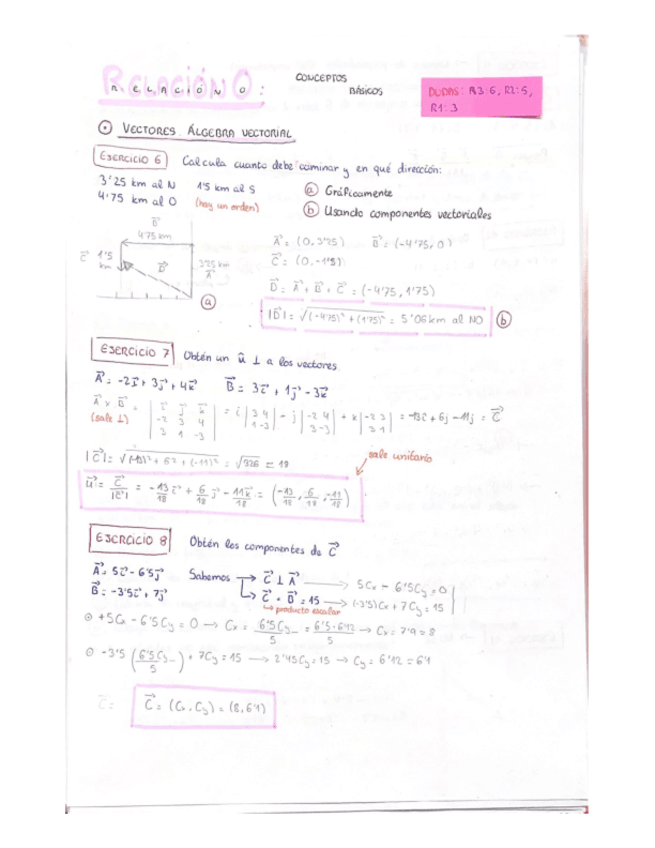 RELACIÓN 0:
CONCEPTOS BÁSICOS
DUDAS: R3:6, R2:5,
R1:3
VECTORES. ÁLGEBRA VECTORIAL
EJERCICIO 6 Calcula cuanto debe caminar y en qué dirección:
3'25 km al N 1'5 km al S ⓐ Gráficamente
4'75 km al O (hay un orden) ⓑ Usando componentes vectoriales
B⃗
4'75 km
C⃗ 1'5 km D⃗ 3'25 km A⃗
ⓐ
A⃗ = (0, 3'25) B⃗ = (-4'75, 0)
C⃗ = (0, -1'5)
D⃗ = A⃗ + B⃗ + C⃗ = (-4'75, 1'75)
|D⃗| = √(-4'75)² + (1'75)² = 5'06 km al NO ⓑ
EJERCICIO 7 Obtén un û ⊥ a los vectores
A⃗ = -2i⃗ + 3j⃗ + 4k⃗ B⃗ = 3i⃗ + 1j⃗ - 3k⃗
A⃗ x B⃗ = |i⃗ j⃗ k⃗| = i |3 4| - j |-2 4| + k |-2 3| = -13i + 6j - 11j = C⃗
(sale ⊥) |-2 3 4| |1 -3| |3 -3| |3 1|
|3 1 -3|
|C⃗| = √(-13)² + 6² + (-11)² = √326 = 18
sale unitario
u⃗ = C⃗/|C⃗| = -13/18 i⃗ + 6/18 j⃗ - 11/18 k⃗ = (-13/18, 6/18, -11/18)
EJERCICIO 8 Obtén los componentes de C⃗
A⃗ = 5i⃗ - 6'5j⃗ Sabemos → C⃗ ⊥ A⃗ → 5Cx - 6'5Cy = 0
B⃗ = -3'5i⃗ + 7j⃗ ↳ C⃗ · B⃗ = 15 → (-3'5)Cx + 7Cy = 15
↳ producto escalar
+5Cx - 6'5Cy = 0 → Cx = 6'5Cy/5 = 6'5·6'12/5 → Cx = 7'9 = 8
-3'5 (6'5Cy/5) + 7Cy = 15 → 2'45Cy = 15 → Cy = 6'12 = 6'1
C⃗ = C⃗ = (Cx, Cy) = (8, 6'1)